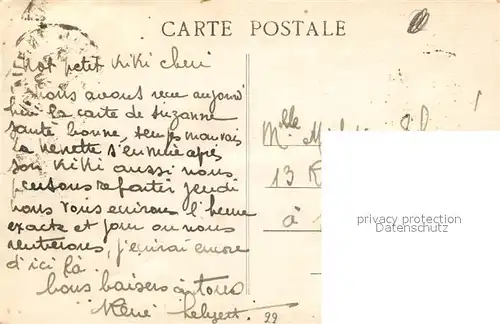 CARTE POSTALE
petit Kiki cheri
nous avons recu aujourd
hui la carte de Suzanne
sante bonne, temps mauvais
la s'ennuie apres
son Kiki aussi nous
pensons repartir jeudi
nous vous ecrirons l'heure
exacte et jour ou nous
rentrerons, j'ecrirai encore
d'ici là.
bons baisers a tous
René
22
Mlle
13
à
privacy protection
Datenschutz